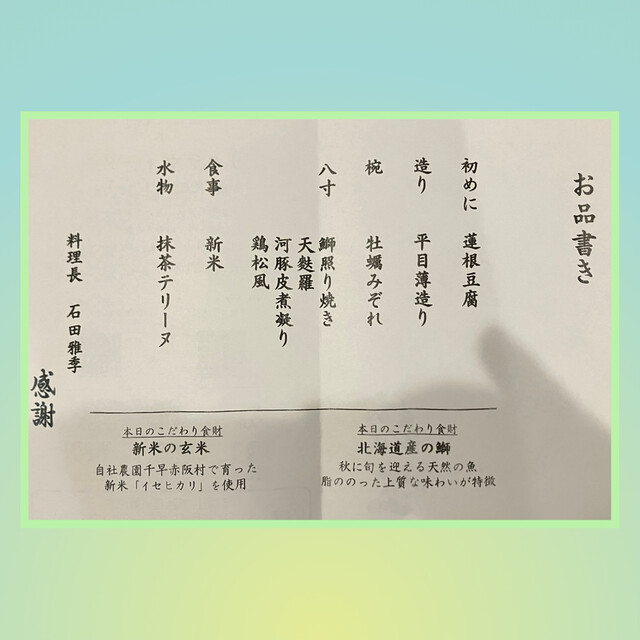 お品書き
初めに 蓮根豆腐
造り 平目薄造り
椀 牡蠣みぞれ
八寸 鰤照り焼き
天麩羅
河豚皮煮凝り
鶏松風
食事 新米
水物 抹茶テリーヌ
料理長 石田雅季
感謝
本日のこだわり食財
北海道産の鰤
秋に旬を迎える天然の魚
脂ののった上質な味わいが特徴
本日のこだわり食財
新米の玄米
自社農園千早赤阪村で育った
新米「イセヒカリ」を使用